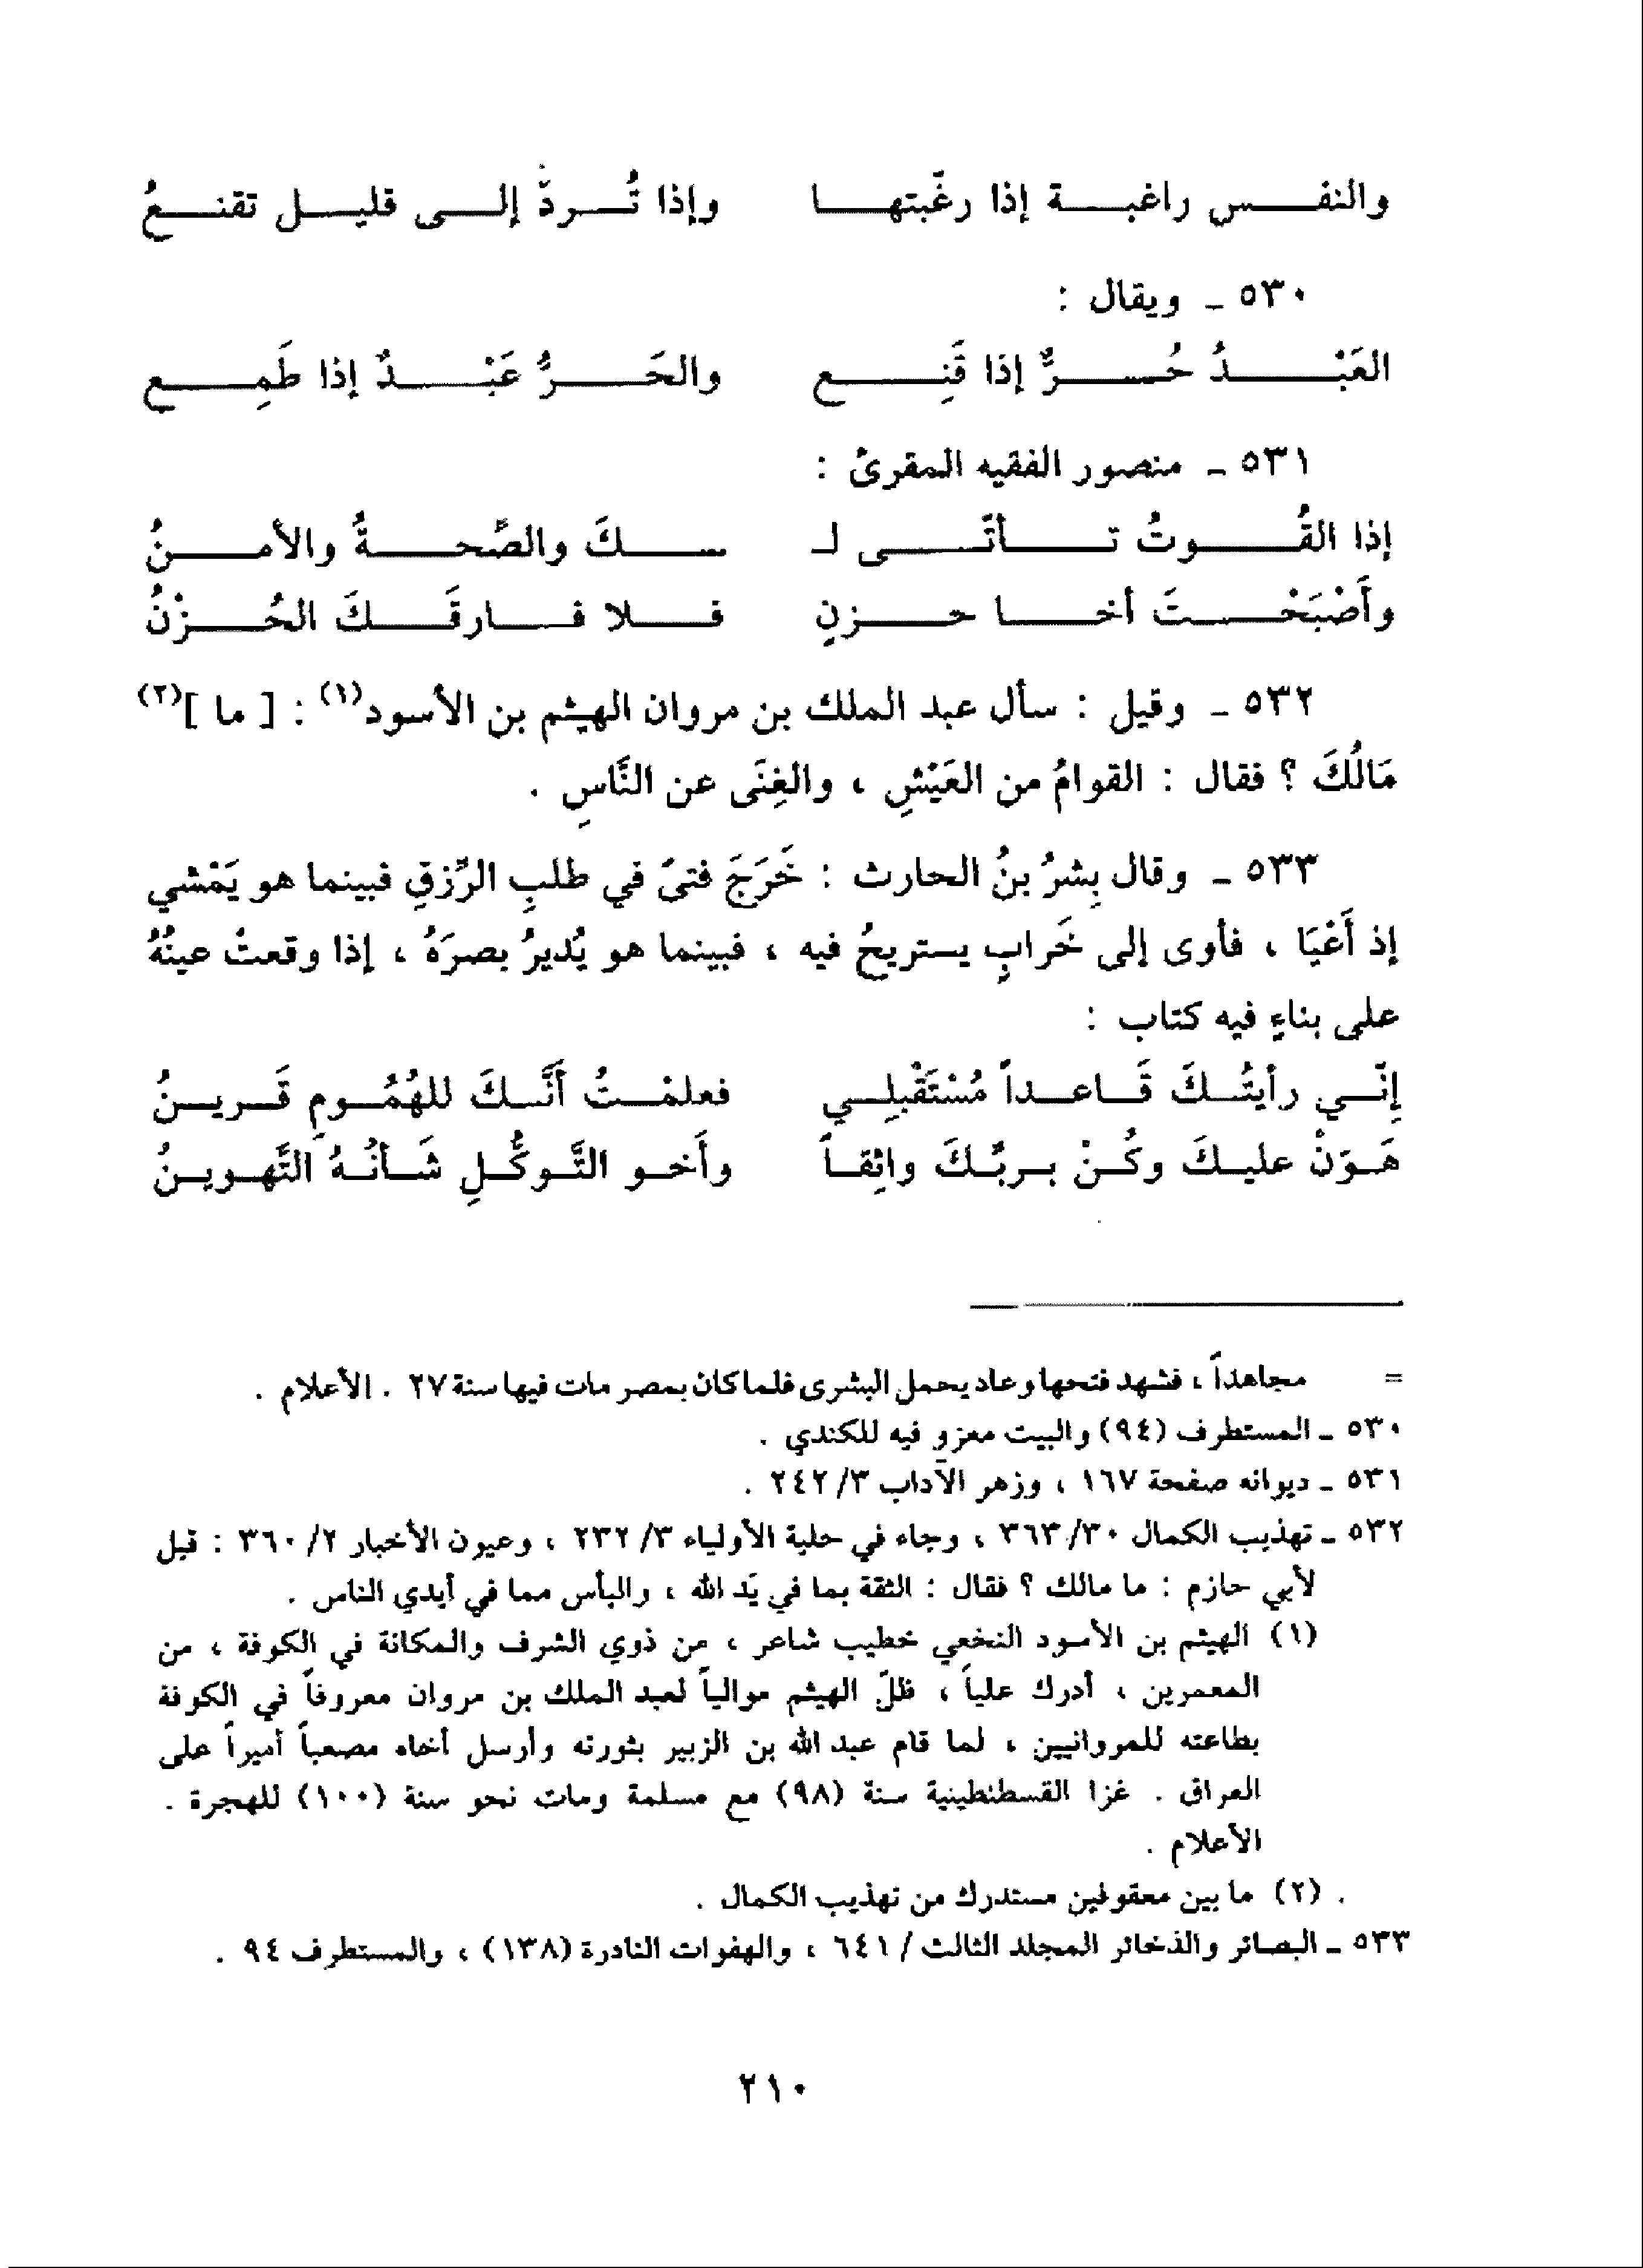 والنفس راغبة إذا رغّبتها وإذا تُردّ إلى قليل تقنعُ
٥٣٠ - ويقال :
العَبْدُ حُرٌّ إذا قَنِع والحَرُّ عَبْدٌ إذا طَمِع
٥٣١ - منصور الفقيه المقرئ :
إذا القُوتُ تأتّى لـ ـكَ والصِّحةُ والأمنُ
وأَصْبَحْتَ أخا حزنٍ فلا فارقَكَ الحُزْنُ
٥٣٢ - وقيل : سأل عبد الملك بن مروان الهيثم بن الأسود(١) : [ ما ](٢)
مَالُكَ ؟ فقال : القوامُ من العَيْشِ ، والغِنَى عن النَّاسِ .
٥٣٣ - وقال بِشرُ بنُ الحارث : خَرَجَ فتىً في طلبِ الرِّزقِ فبينما هو يَمْشي
إذ أَعْيَا ، فأوى إلى خَرابٍ يستريحُ فيه ، فبينما هو يُديرُ بصرَهُ ، إذا وقعتْ عينُهُ
على بناءٍ فيه كتاب :
إِنّي رأيتُكَ قَاعداً مُسْتَقْبِلِي فعلمْتُ أَنَّكَ للهُمُومِ قَرينُ
هَوّنْ عليكَ وكُنْ بربّكَ واثِقاً وأَخو التَّوكُّلِ شَأنُهُ التَّهوينُ
= مجاهداً ، فشهد فتحها وعاد يحمل البشرى فلما كان بمصر مات فيها سنة ٢٧ . الأعلام .
٥٣٠ - المستطرف (٩٤) والبيت معزو فيه للكندي .
٥٣١ - ديوانه صفحة ١٦٧ ، وزهر الآداب ٣/ ٢٤٢ .
٥٣٢ - تهذيب الكمال ٣٠/ ٣٦٣ ، وجاء في حلية الأولياء ٣/ ٢٣٢ ، وعيون الأخبار ٢/ ٣٦٠ : قيل
لأبي حازم : ما مالك ؟ فقال : الثقة بما في يَد الله ، واليأس مما في أيدي الناس .
(١) الهيثم بن الأسود النخعي خطيب شاعر ، من ذوي الشرف والمكانة في الكوفة ، من
المعمرين ، أدرك علياً ، ظلّ الهيثم موالياً لعبد الملك بن مروان معروفاً في الكوفة
بطاعته للمروانيين ، لما قام عبد الله بن الزبير بثورته وأرسل أخاه مصعباً أميراً على
العراق . غزا القسطنطينية سنة (٩٨) مع مسلمة ومات نحو سنة (١٠٠) للهجرة .
الأعلام .
. (٢) ما بين معقوفين مستدرك من تهذيب الكمال .
٥٣٣ - البصائر والذخائر المجلد الثالث / ٦٤١ ، والهفوات النادرة (١٣٨) ، والمستطرف ٩٤ .
٢١٠